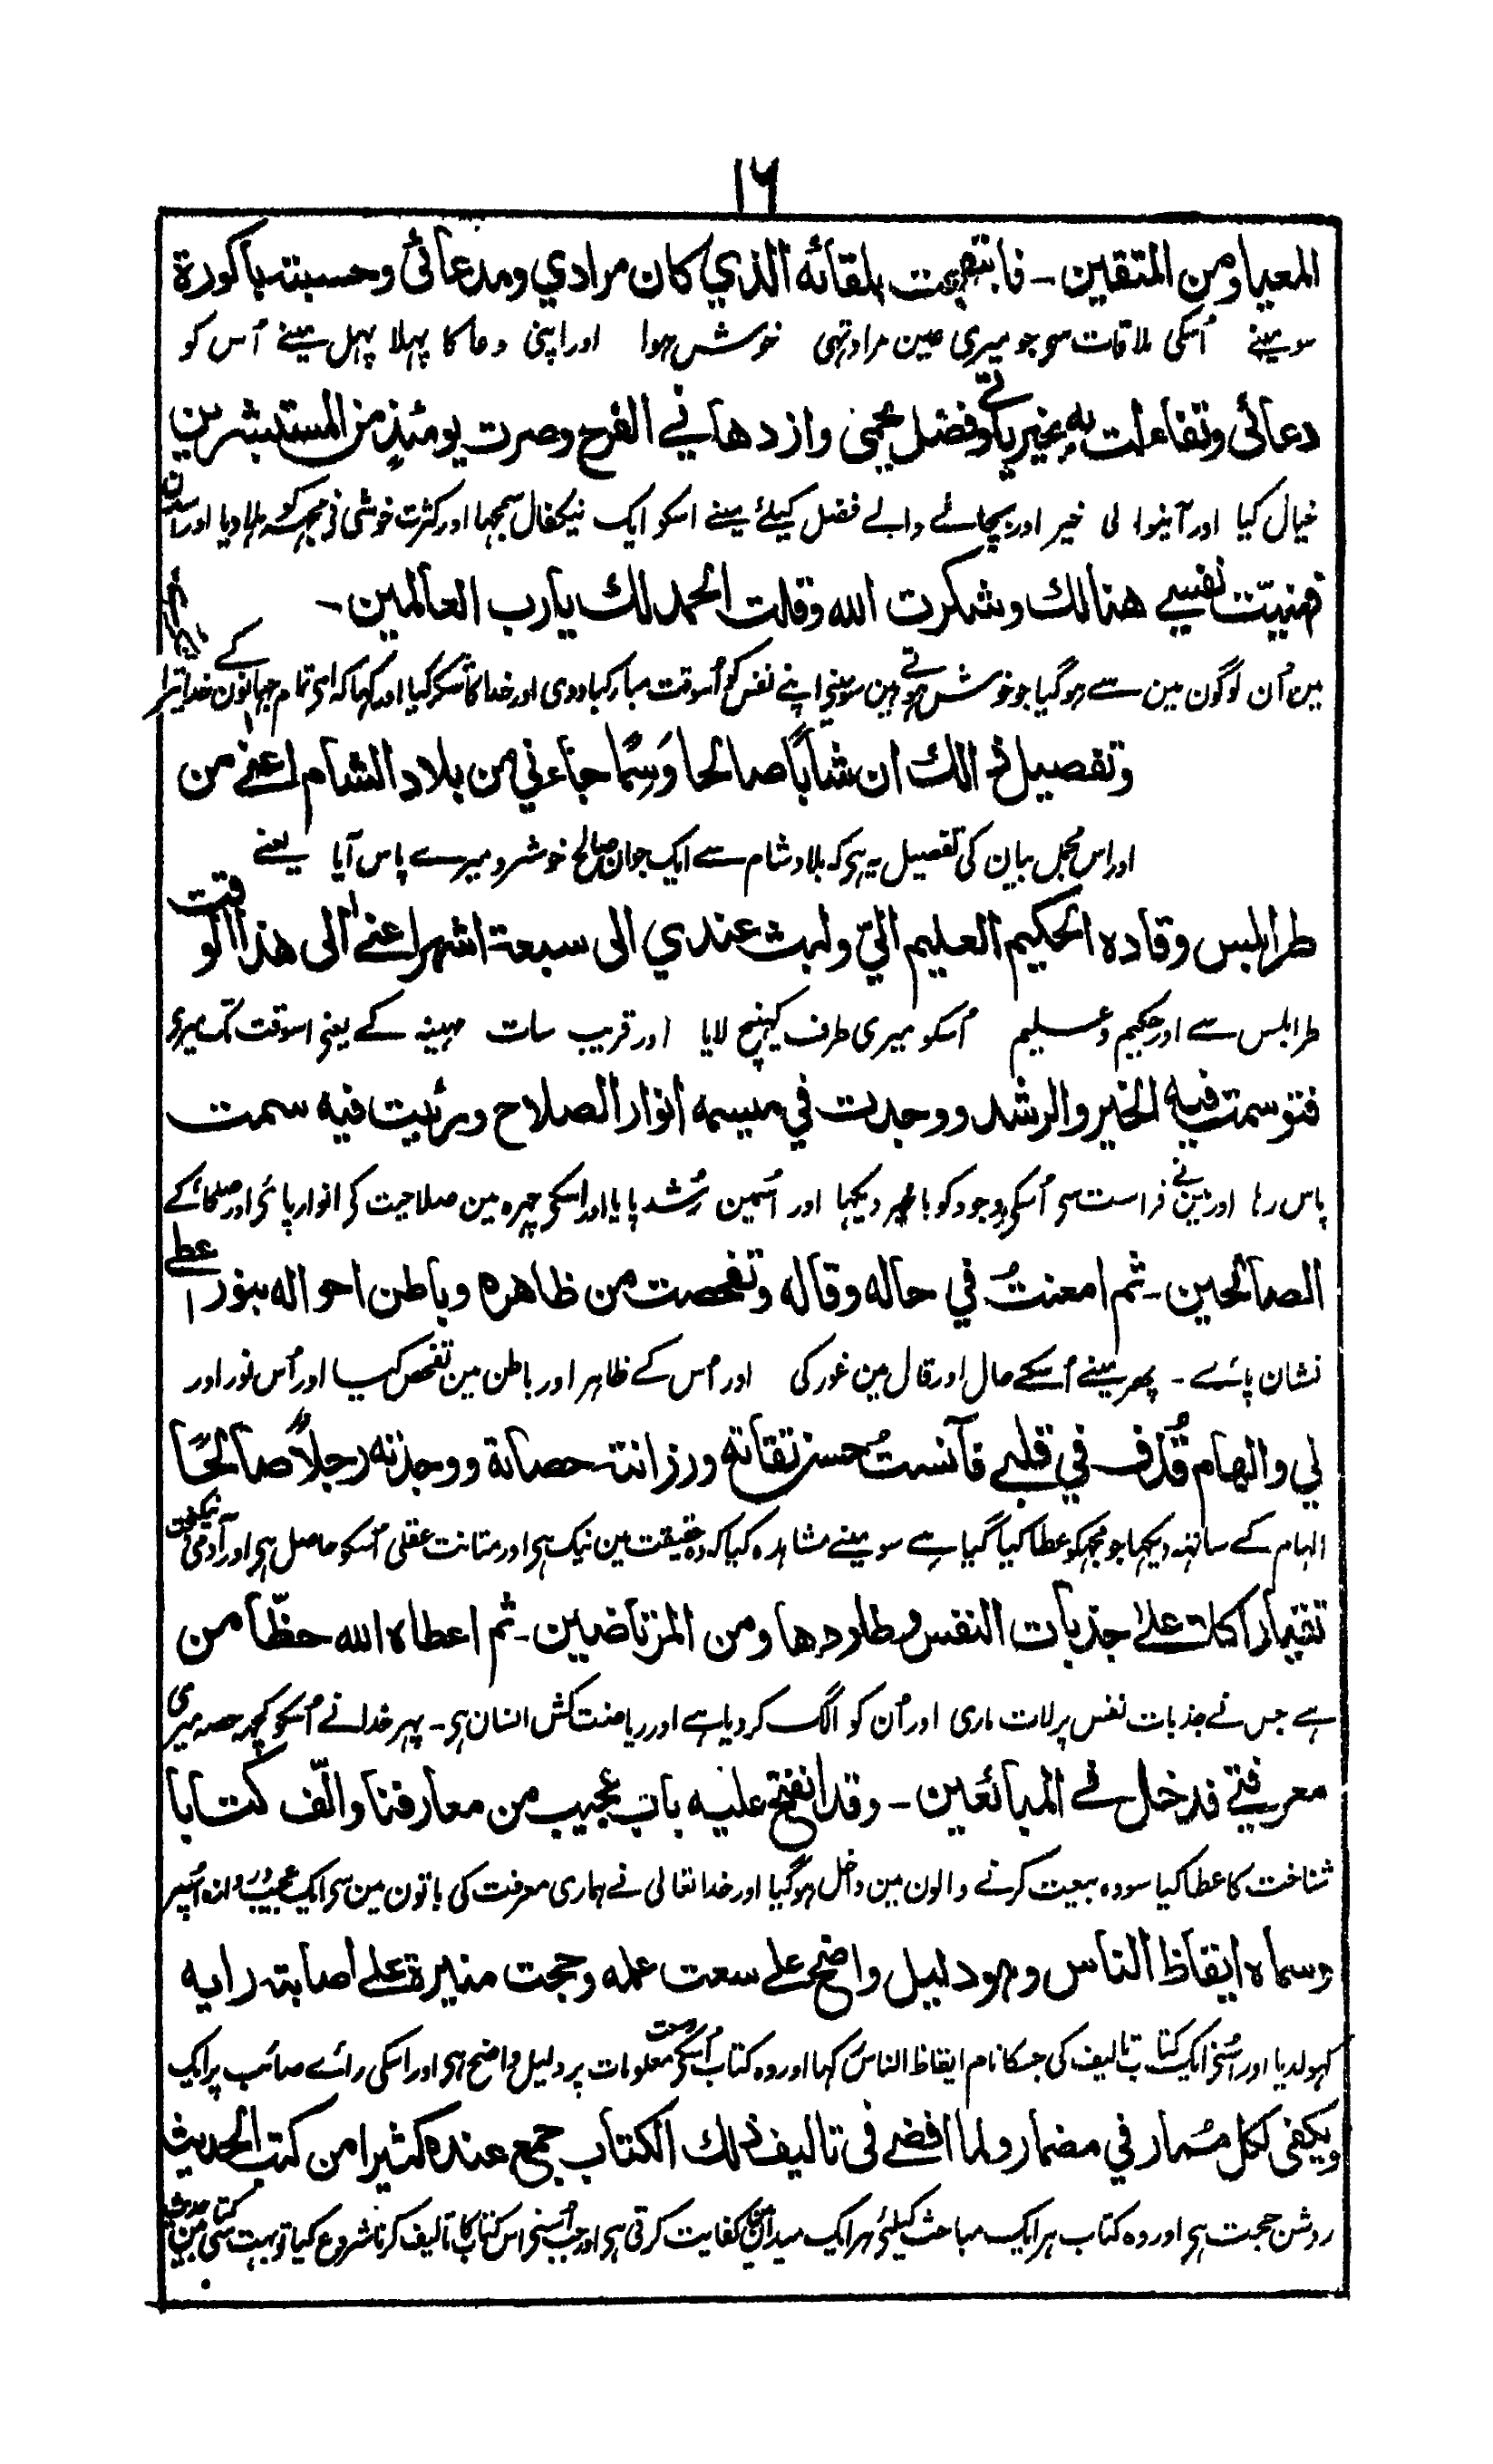 ۱۶
المعیا ومن المتقین - فابتهجت بلقائه الذي كان مرادي ومدعائی وحسبته باکورة
سو مینے اُسکی ملاقات سی جو میری عین مراد تہی خوش ہوا اور اپنی دعا کا پہلا پہل مینے اُس کو
دعائی وتفاءلت به بخیر یاتی وفضل یحمی وازدهانی الفرح وصرت یومئذٍ من المستبشرین
خیال کیا اور آنیوالی خیر اور بچانے والے فضل کیلئے مینے اسکو ایک نیکفال سمجہا اور کثرت خوشی نی مجہکو ہلا دیا اور اسدن
فهنیّت نفسے هنالك وشکرت الله وقلت الحمد لك یا رب العالمین -
مین اُن لوگون مین سے ہوگیا جو خوش ہوتے ہین سو مینی اپنے نفس کو اُسوقت مبارکباد دی اور خدا کا شکر کیا اور کہا کہ ای تمام جہانون کے خدا تیرا
وتفصیل ذالك ان شابًا صالحا وَسِمًا جاءنی من بلاد الشام اعنے من
اور اس مجمل بیان کی تفصیل یہ ہی کہ بلاد شام سے ایک جوان صالح خوشرو میرے پاس آیا یعنے
طرابلس وقاده الحکیم العلیم الیّ ولبث عندي الی سبعة اشهر اعنے الی هذا الوقت
طرابلس سے اور حکیم و علیم اُسکو میری طرف کہینچ لایا اور قریب سات مہینہ کے یعنی اسوقت تک میری
فتوسمت فیه الخیر والرشد ووجدت في میسمه انوار الصلاح ورئیت فیه سمت
پاس رہا اور مین نے فراست سی اُسکی وجود کو باخیر دیکہا اور اُسمین رُشد پایا اور اسکی چہرہ مین صلاحیت کی انوار پائی اور صلحاء کے
الصالحین - ثم امعنتُ في حاله وقاله وتفحصت من ظاهره وباطن احواله بنور اعطی
نشان پائے - پھر مینے اُسکے حال اور قال مین غور کی اور اُس کے ظاہر اور باطن مین تفحص کیا اور اُس نور اور
لی والهام قُذف في قلبے فآنستُ حسن تقاته ورزانته حصاته ووجدته رجلًا صالحًا
الہام کے ساتہہ دیکہا جو مجہکو عطا کیا گیا ہے سو مینے مشاہدہ کیا کہ وہ حقیقت مین نیک ہی اور متانت عقلی اُسکو حاصل ہی اور آدمی نیکبخت
تقیا راکلا علے جذبات النفس وطاردها ومن المرتاضین - ثم اعطاه الله حظًّا من
ہے جس نے جذبات نفس پر لات ماری اور اُن کو الگ کر دیا ہے اور ریاضت کش انسان ہی - پہر خدا نے اُسکو کچہہ حصہ میری
معرفتے فدخل فے المبائعین - وقد انفتح علیه باب عجیب من معارفنا والّف کتابا
شناخت کا عطا کیا سو وہ بیعت کرنے والون مین داخل ہوگیا اور خدا تعالی نے ہماری معرفت کی باتون مین سی ایک عجیب دروازہ اُسپر
وسماه ایقاظ الناس وهو دلیل واضح علے سعت علمه وحجت منیرة علے اصابته رایه
کہولدیا اور اُسنی ایک کتاب تالیف کی جسکا نام ایقاظ الناس رکہا اور وہ کتاب اُسکی وسعت معلومات پر دلیل واضح ہی اور اسکی رائے صائب پر ایک
ویکفی لکل مُمار في مضمار ولما افضے فی تالیف ذلك الکتاب جمع عنده کثیرا من کتب الحدیث
روشن حجت ہی اور وہ کتاب ہر ایک مباحث کیلئے ہر ایک میدان مین کفایت کرتی ہی اور جب اُسنی اس کتاب کا تالیف کرنا شروع کیا تو بہت سی کتابین حدیث